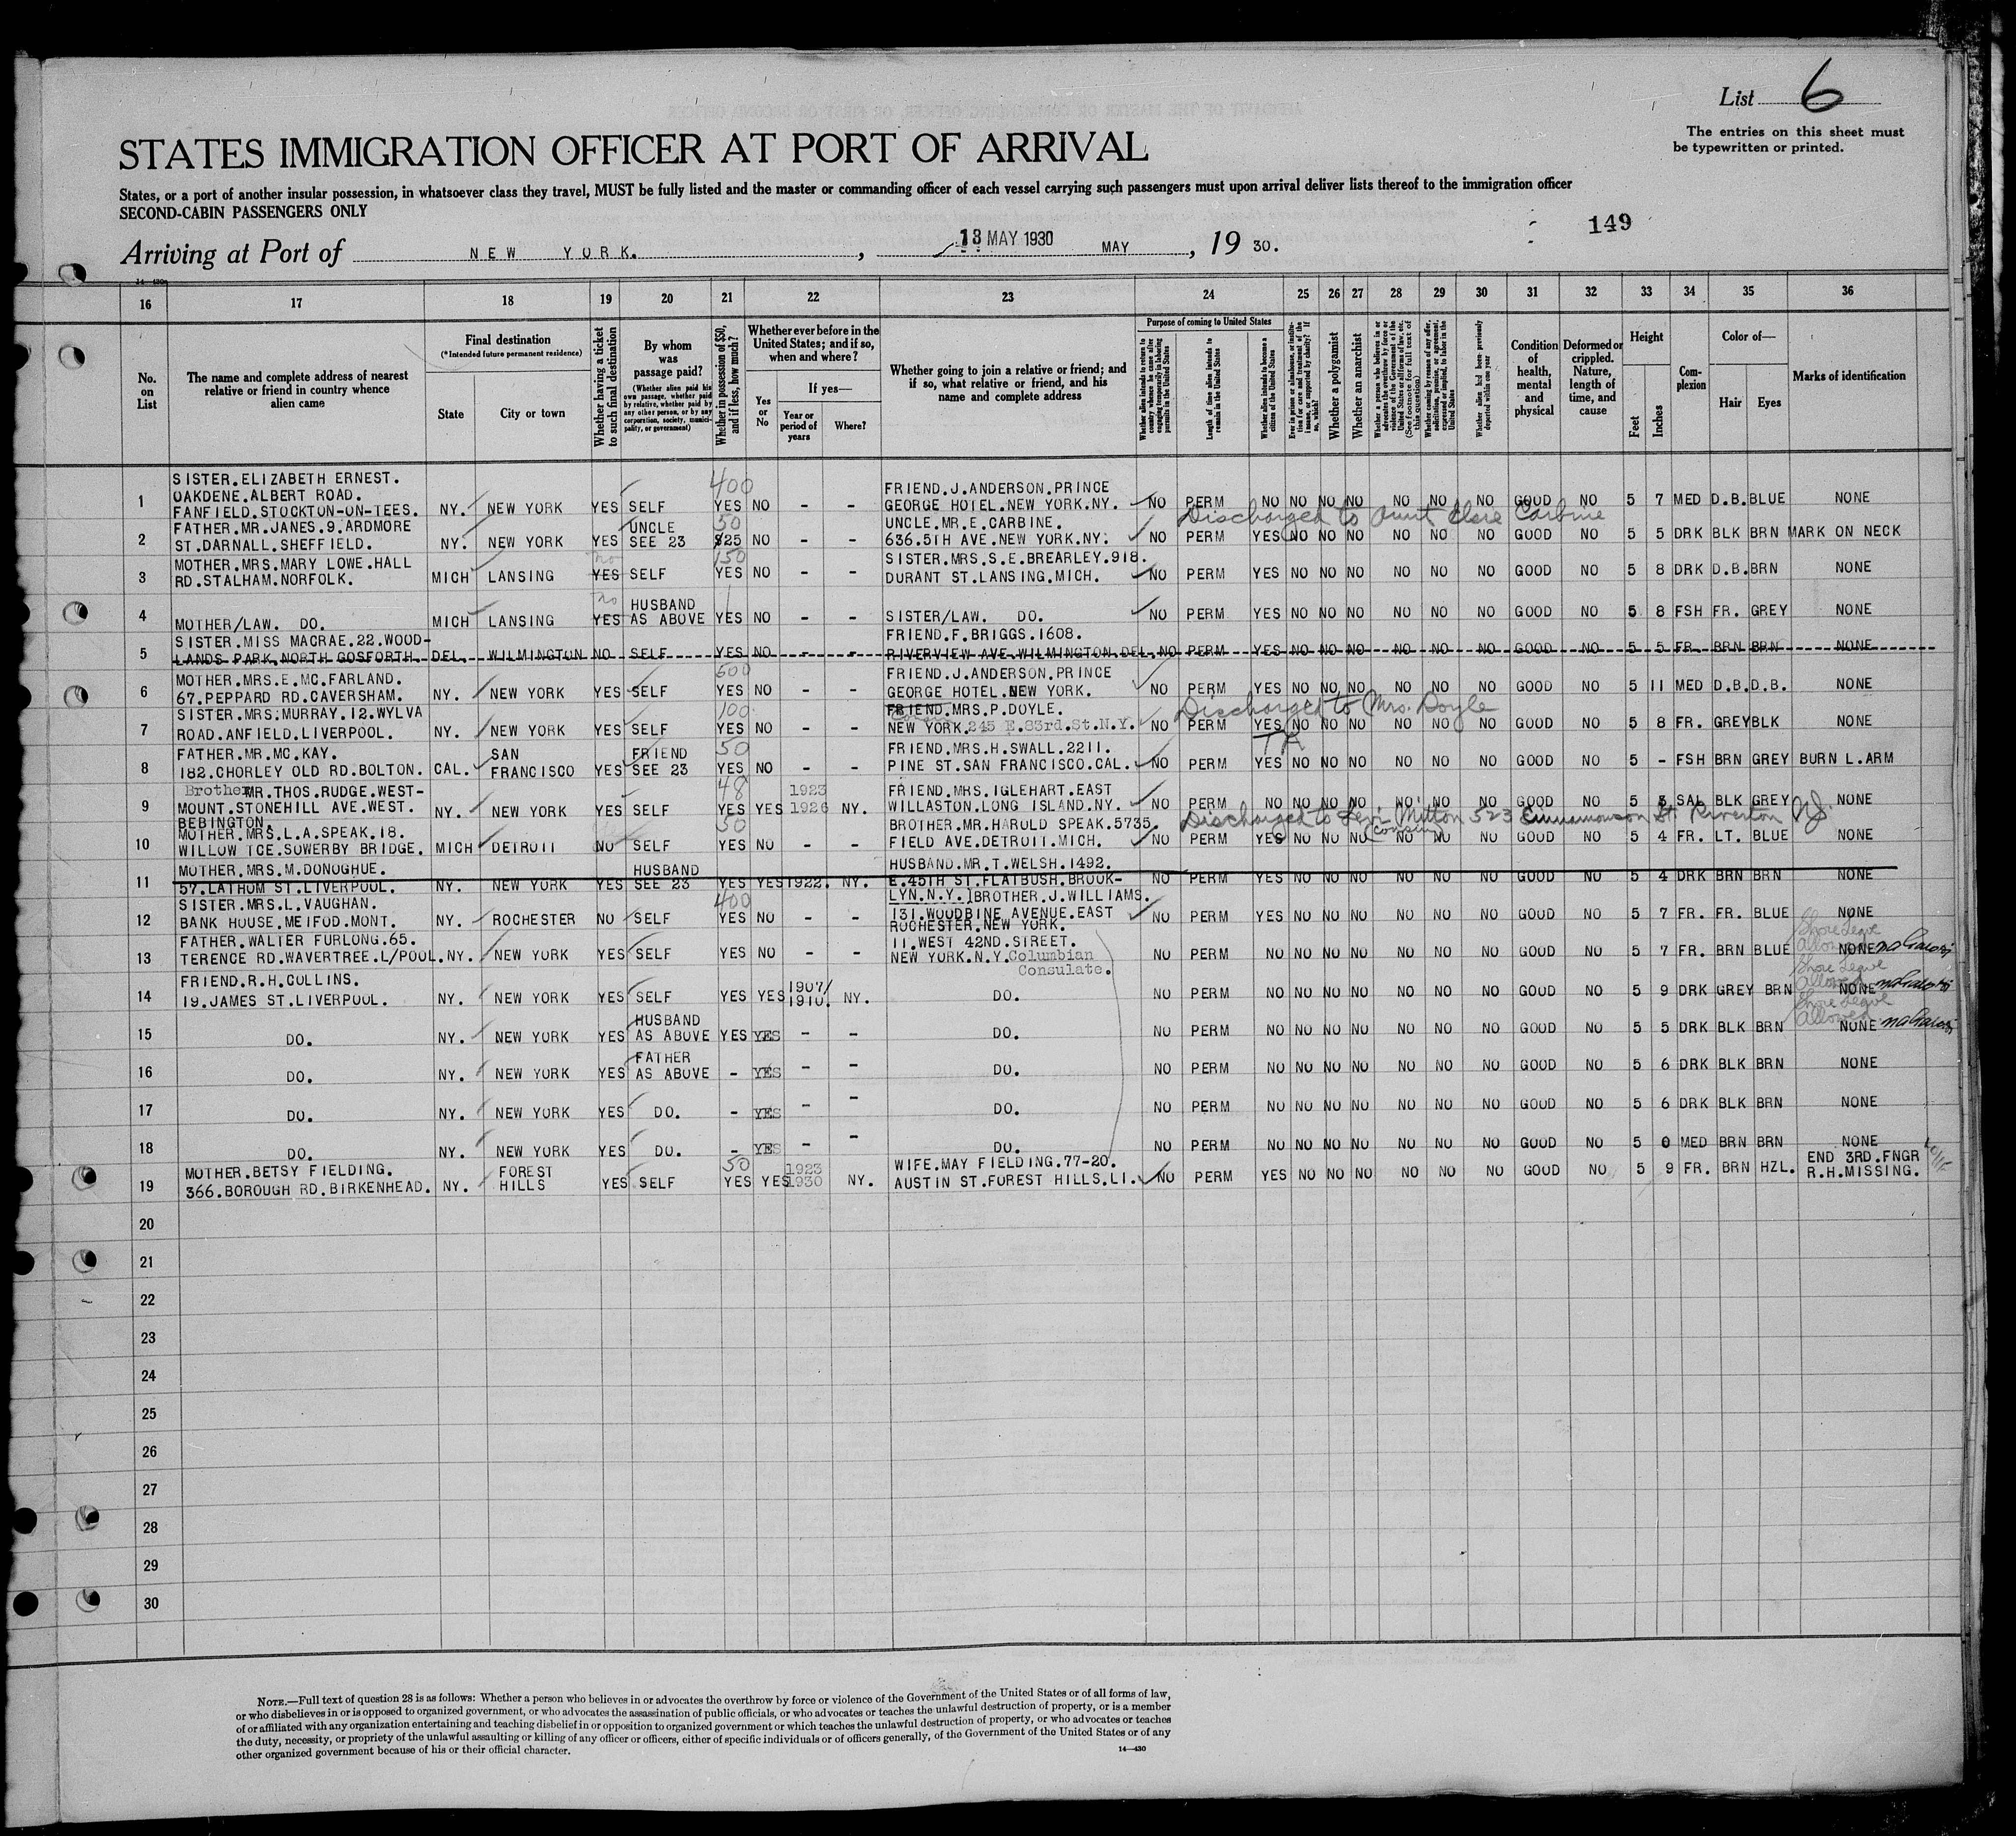 List 6
The entries on this sheet must
be typewritten or printed.
STATES IMMIGRATION OFFICER AT PORT OF ARRIVAL
States, or a port of another insular possession, in whatsoever class they travel, MUST be fully listed and the master or commanding officer of each vessel carrying such passengers must upon arrival deliver lists thereof to the immigration officer
SECOND-CABIN PASSENGERS ONLY
149
Arriving at Port of NEW YORK. , 13 MAY 1930 MAY , 19 30.
16 17 18 19 20 21 22 23 24 25 26 27 28 29 30 31 32 33 34 35 36
No. on List
The name and complete address of nearest relative or friend in country whence alien came
Final destination
(*Intended future permanent residence)
State
City or town
Whether having a ticket to such final destination
By whom was passage paid?
(Whether alien paid his own passage, whether paid by relative, whether paid by any other person, or by any corporation, society, municipality, or government)
Whether in possession of $50, and if less, how much?
Whether ever before in the United States; and if so, when and where?
Yes or No
If yes—
Year or period of years
Where?
Whether going to join a relative or friend; and if so, what relative or friend, and his name and complete address
Purpose of coming to United States
Whether alien intends to return to country whence he came after engaging temporarily in laboring pursuits in the United States
Length of time alien intends to remain in the United States
Whether alien intends to become a citizen of the United States
Ever in prison or almshouse, or institution for care and treatment of the insane, or supported by charity? If so, which?
Whether a polygamist
Whether an anarchist
Whether a person who believes in or advocates the overthrow by force or violence of the Government of the United States or all forms of law, etc. (See footnote for full text of this question)
Whether coming by reason of any offer, solicitation, promise, or agreement, expressed or implied, to labor in the United States
Whether alien had been previously deported within one year
Condition of health, mental and physical
Deformed or crippled. Nature, length of time, and cause
Height
Feet
Inches
Complexion
Color of—
Hair
Eyes
Marks of identification
1 SISTER.ELIZABETH ERNEST. OAKDENE.ALBERT ROAD. FANFIELD.STOCKTON-ON-TEES. NY. NEW YORK YES SELF 400 YES NO - - FRIEND.J.ANDERSON.PRINCE GEORGE HOTEL.NEW YORK.NY. NO PERM NO NO NO NO NO NO NO GOOD NO 5 7 MED D.B. BLUE NONE
Discharged to Aunt Elsie Carbine
2 FATHER.MR.JANES.9.ARDMORE ST.DARNALL.SHEFFIELD. NY. NEW YORK YES UNCLE SEE 23 50 $25 NO - - UNCLE.MR.E.CARBINE. 636.5TH AVE.NEW YORK.NY. NO PERM YES NO NO NO NO NO NO GOOD NO 5 5 DRK BLK BRN MARK ON NECK
3 MOTHER.MRS.MARY LOWE.HALL RD.STALHAM.NORFOLK. MICH LANSING no YES SELF 150 YES NO - - SISTER.MRS.S.E.BREARLEY.918. DURANT ST.LANSING.MICH. NO PERM YES NO NO NO NO NO NO GOOD NO 5 8 DRK D.B. BRN NONE
4 MOTHER/LAW. DO. MICH LANSING no YES HUSBAND AS ABOVE YES NO - - SISTER/LAW. DO. NO PERM YES NO NO NO NO NO NO GOOD NO 5 8 FSH FR. GREY NONE
5 SISTER.MISS MACRAE.22.WOOD- LANDS PARK.NORTH GOSFORTH. DEL. WILMINGTON NO SELF YES NO - - FRIEND.F.BRIGGS.1608. RIVERVIEW AVE.WILMINGTON.DEL. NO PERM YES NO NO NO NO NO NO GOOD NO 5 5 FR. BRN BRN NONE
6 MOTHER.MRS.E.MC.FARLAND. 67.PEPPARD RD.CAVERSHAM. NY. NEW YORK YES SELF 500 YES NO - - FRIEND.J.ANDERSON.PRINCE GEORGE HOTEL.NEW YORK. NO PERM YES NO NO NO NO NO NO GOOD NO 5 11 MED D.B. D.B. NONE
Discharged to Mrs. Doyle
7 SISTER.MRS.MURRAY.12.WYLVA ROAD.ANFIELD.LIVERPOOL. NY. NEW YORK YES SELF 100 YES NO - - FRIEND.MRS.P.DOYLE. Cousin NEW YORK.245 E.83rd.St.N.Y. NO PERM YES NO NO NO NO NO NO GOOD NO 5 8 FR. GREY BLK NONE
8 FATHER.MR.MC.KAY. 182.CHORLEY OLD RD.BOLTON. CAL. SAN FRANCISCO YES FRIEND SEE 23 50 YES NO - - FRIEND.MRS.H.SWALL.2211. PINE ST.SAN FRANCISCO.CAL. NO PERM YES NO NO NO NO NO NO GOOD NO 5 - FSH BRN GREY BURN L.ARM
9 Brother MR.THOS.RUDGE.WEST- MOUNT.STONEHILL AVE.WEST. BEBINGTON. NY. NEW YORK YES SELF 48 YES YES 1923 1926 NY. FRIEND.MRS.IGLEHART.EAST WILLASTON.LONG ISLAND.NY. NO PERM NO NO NO NO NO NO NO GOOD NO 5 3 SAL BLK GREY NONE
Discharged to Levi Mitton 523 Cinnaminson St Riverton NJ.
cousin
10 MOTHER.MRS.L.A.SPEAK.18. WILLOW TCE.SOWERBY BRIDGE. MICH DETROIT NO SELF 50 YES NO - - BROTHER.MR.HAROLD SPEAK.5735. FIELD AVE.DETROIT.MICH. NO PERM YES NO NO NO NO NO NO GOOD NO 5 4 FR. LT. BLUE NONE
11 MOTHER.MRS.M.DONOGHUE. 57.LATHOM ST.LIVERPOOL. NY. NEW YORK YES HUSBAND SEE 23 YES YES 1922. NY. HUSBAND.MR.T.WELSH.1492. E.45TH ST.FLATBUSH.BROOK- LYN.N.Y. NO PERM YES NO NO NO NO NO NO GOOD NO 5 4 DRK BRN BRN NONE
12 SISTER.MRS.L.VAUGHAN. BANK HOUSE.MEIFOD.MONT. NY. ROCHESTER NO SELF 400 YES NO - - BROTHER.J.WILLIAMS. 131.WOODBINE AVENUE.EAST ROCHESTER.NEW YORK. NO PERM YES NO NO NO NO NO NO GOOD NO 5 7 FR. FR. BLUE NONE
13 FATHER.WALTER FURLONG.65. TERENCE RD.WAVERTREE.L/POOL. NY. NEW YORK YES SELF YES NO - - 11.WEST 42ND.STREET. NEW YORK.N.Y. Columbian Consulate. NO PERM NO NO NO NO NO NO NO GOOD NO 5 7 FR. BRN BLUE NONE Shore Leave Allowed
14 FRIEND.R.H.COLLINS. 19.JAMES ST.LIVERPOOL. NY. NEW YORK YES SELF YES YES 1907/ 1910. NY. DO. NO PERM NO NO NO NO NO NO NO GOOD NO 5 9 DRK GREY BRN NONE Shore Leave Allowed
15 DO. NY. NEW YORK YES HUSBAND AS ABOVE YES YES - DO. NO PERM NO NO NO NO NO NO NO GOOD NO 5 5 DRK BLK BRN NONE Shore Leave Allowed
16 DO. NY. NEW YORK YES FATHER AS ABOVE - YES - - DO. NO PERM NO NO NO NO NO NO NO GOOD NO 5 6 DRK BLK BRN NONE
17 DO. NY. NEW YORK YES DO. - YES - - DO. NO PERM NO NO NO NO NO NO NO GOOD NO 5 6 DRK BLK BRN NONE
18 DO. NY. NEW YORK YES DO. - YES - - DO. NO PERM NO NO NO NO NO NO NO GOOD NO 5 0 MED BRN BRN NONE
19 MOTHER.BETSY FIELDING. 366.BOROUGH RD.BIRKENHEAD. NY. FOREST HILLS YES SELF 50 YES YES 1923 1930 NY. WIFE.MAY FIELDING.77-20. AUSTIN ST.FOREST HILLS.LI. NO PERM YES NO NO NO NO NO NO GOOD NO 5 9 FR. BRN HZL. END 3RD.FNGR R.H.MISSING.
20
21
22
23
24
25
26
27
28
29
30
NOTE.—Full text of question 28 is as follows: Whether a person who believes in or advocates the overthrow by force or violence of the Government of the United States or of all forms of law,
or who disbelieves in or is opposed to organized government, or who advocates the assassination of public officials, or who advocates or teaches the unlawful destruction of property, or is a member
of or affiliated with any organization entertaining and teaching disbelief in or opposition to organized government or which teaches the unlawful destruction of property, or who advocates or teaches
the duty, necessity, or propriety of the unlawful assaulting or killing of any officer or officers, either of specific individuals or of officers generally, of the Government of the United States or of any
other organized government because of his or their official character.
14—430